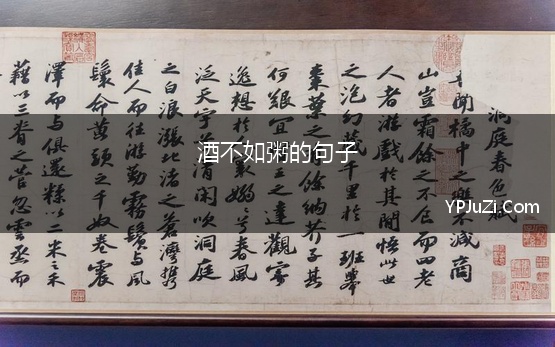 洞庭春色賦
聞橘中之樂不減商
山豈霜餘之不食而四老
人者游戲於其間悟此世
之泡幻藏千里於一班舉
棗葉之有餘納芥子其
何艱宜賢王之達觀寄
逸想於人寰嫋嫋兮春風
泛天宇兮清閑吹洞庭
之白浪漲北渚之蒼灣攜
佳人而往游勤霧鬢與風
鬟命黃頭之千奴卷震
澤而與俱還糅以二米之禾
藉以三脊之菅忽雲烝而
酒不如粥的句子
YPJuZi.Com